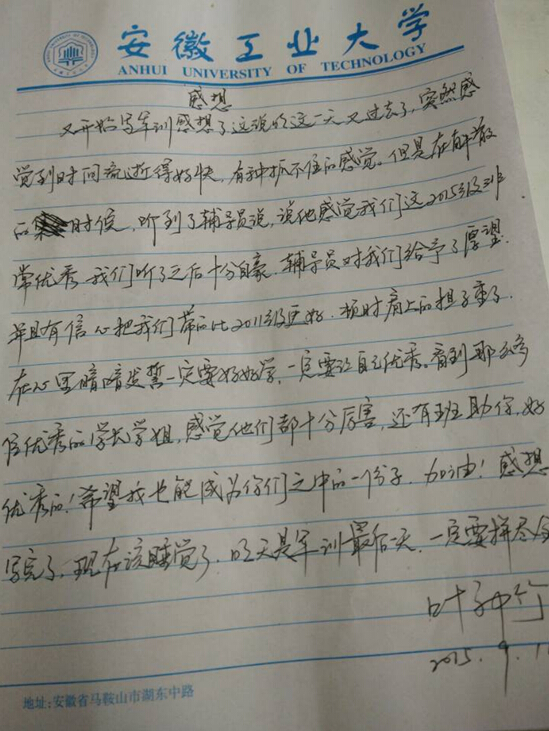 安徽工业大学
ANHUI UNIVERSITY OF TECHNOLOGY
感想
又开始写军训感想了，这说明这一天又过去了，突然感
觉到时间流逝得好快，有种抓不住的感觉。但是在解散
的时候，听到了辅导员说，说他感觉我们这2015级非
常优秀，我们听了之后十分自豪，辅导员对我们给予了厚望，
并且有信心把我们带的比2011级更好，顿时肩上的担子重了，
在心里暗暗发誓一定要好好学，一定要让自己优秀。看到那么多
优秀的学长学姐，感觉他们都十分厉害，还有班助你，好
优秀的！希望我也能成为你们之中的一份子，加油！感想
写完了，现在该睡觉了，明天是军训最后一天，一定要拼尽全
2015.9.1
地址:安徽省马鞍山市湖东中路